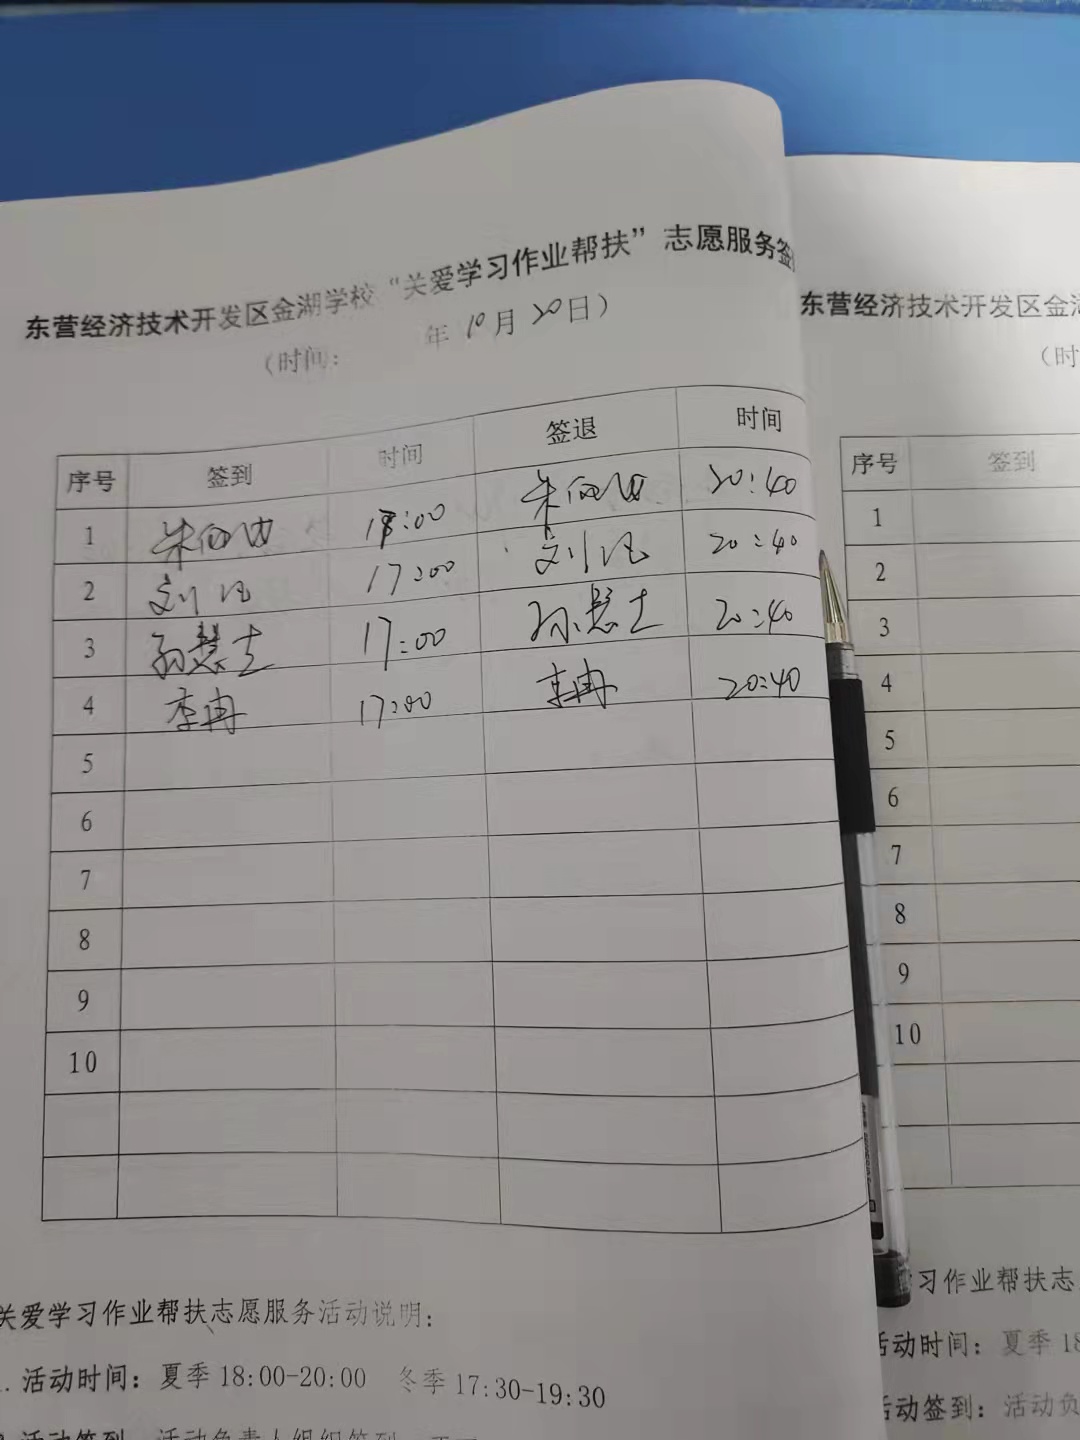 东营经济技术开发区金湖学校“关爱学习作业帮扶”志愿服务签
（时间： 年10月20日）
序号 签到 时间 签退 时间
1 朱 :00 朱 20:40
2 刘 17:00 刘 20:40
3 孙慧 17:00 孙慧 20:40
4 李冉 17:00 李冉 20:40
5
6
7
8
9
10
关爱学习作业帮扶志愿服务活动说明：
1.活动时间：夏季18:00-20:00 冬季17:30-19:30
活动签到 活动负责人组织签到
东营经济技术开发区金湖
（时
序号 签到
1
2
3
4
5
6
7
8
9
10
习作业帮扶志
活动时间：夏季18
活动签到：活动负